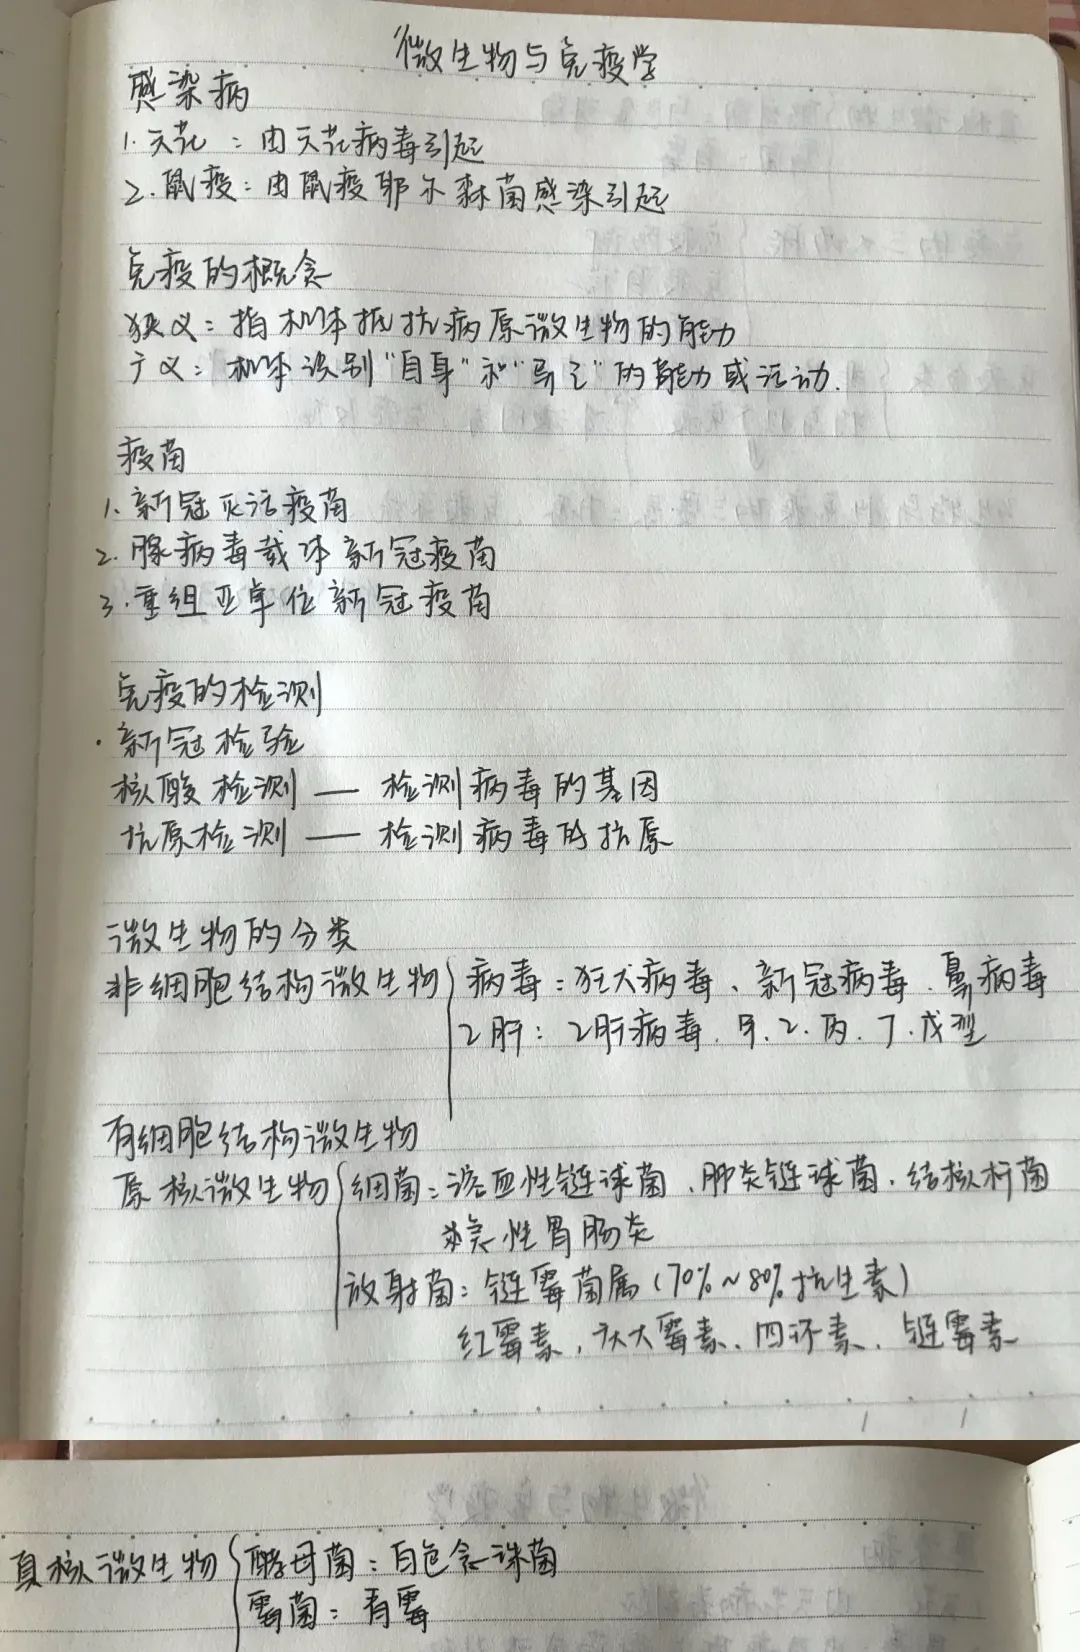 微生物与免疫学
感染病
1. 天花：由天花病毒引起
2. 鼠疫：由鼠疫耶尔森菌感染引起
免疫的概念
狭义：指机体抵抗病原微生物的能力
广义：机体识别“自身”和“异己”的能力或活动.
疫苗
1. 新冠灭活疫苗
2. 腺病毒载体新冠疫苗
3. 重组亚单位新冠疫苗
免疫的检测
· 新冠检验
核酸检测 — 检测病毒的基因
抗原检测 — 检测病毒的抗原
微生物的分类
非细胞结构微生物 { 病毒：狂犬病毒、新冠病毒、鼻病毒
乙肝：乙肝病毒. 甲.乙.丙.丁.戊型
有细胞结构微生物
原核微生物 { 细菌：溶血性链球菌、肺炎链球菌、结核杆菌
急性胃肠炎
放射菌：链霉菌属(70%~80%抗生素)
红霉素、庆大霉素、四环素、链霉素
真核微生物 { 酵母菌：白色念珠菌
霉菌：青霉